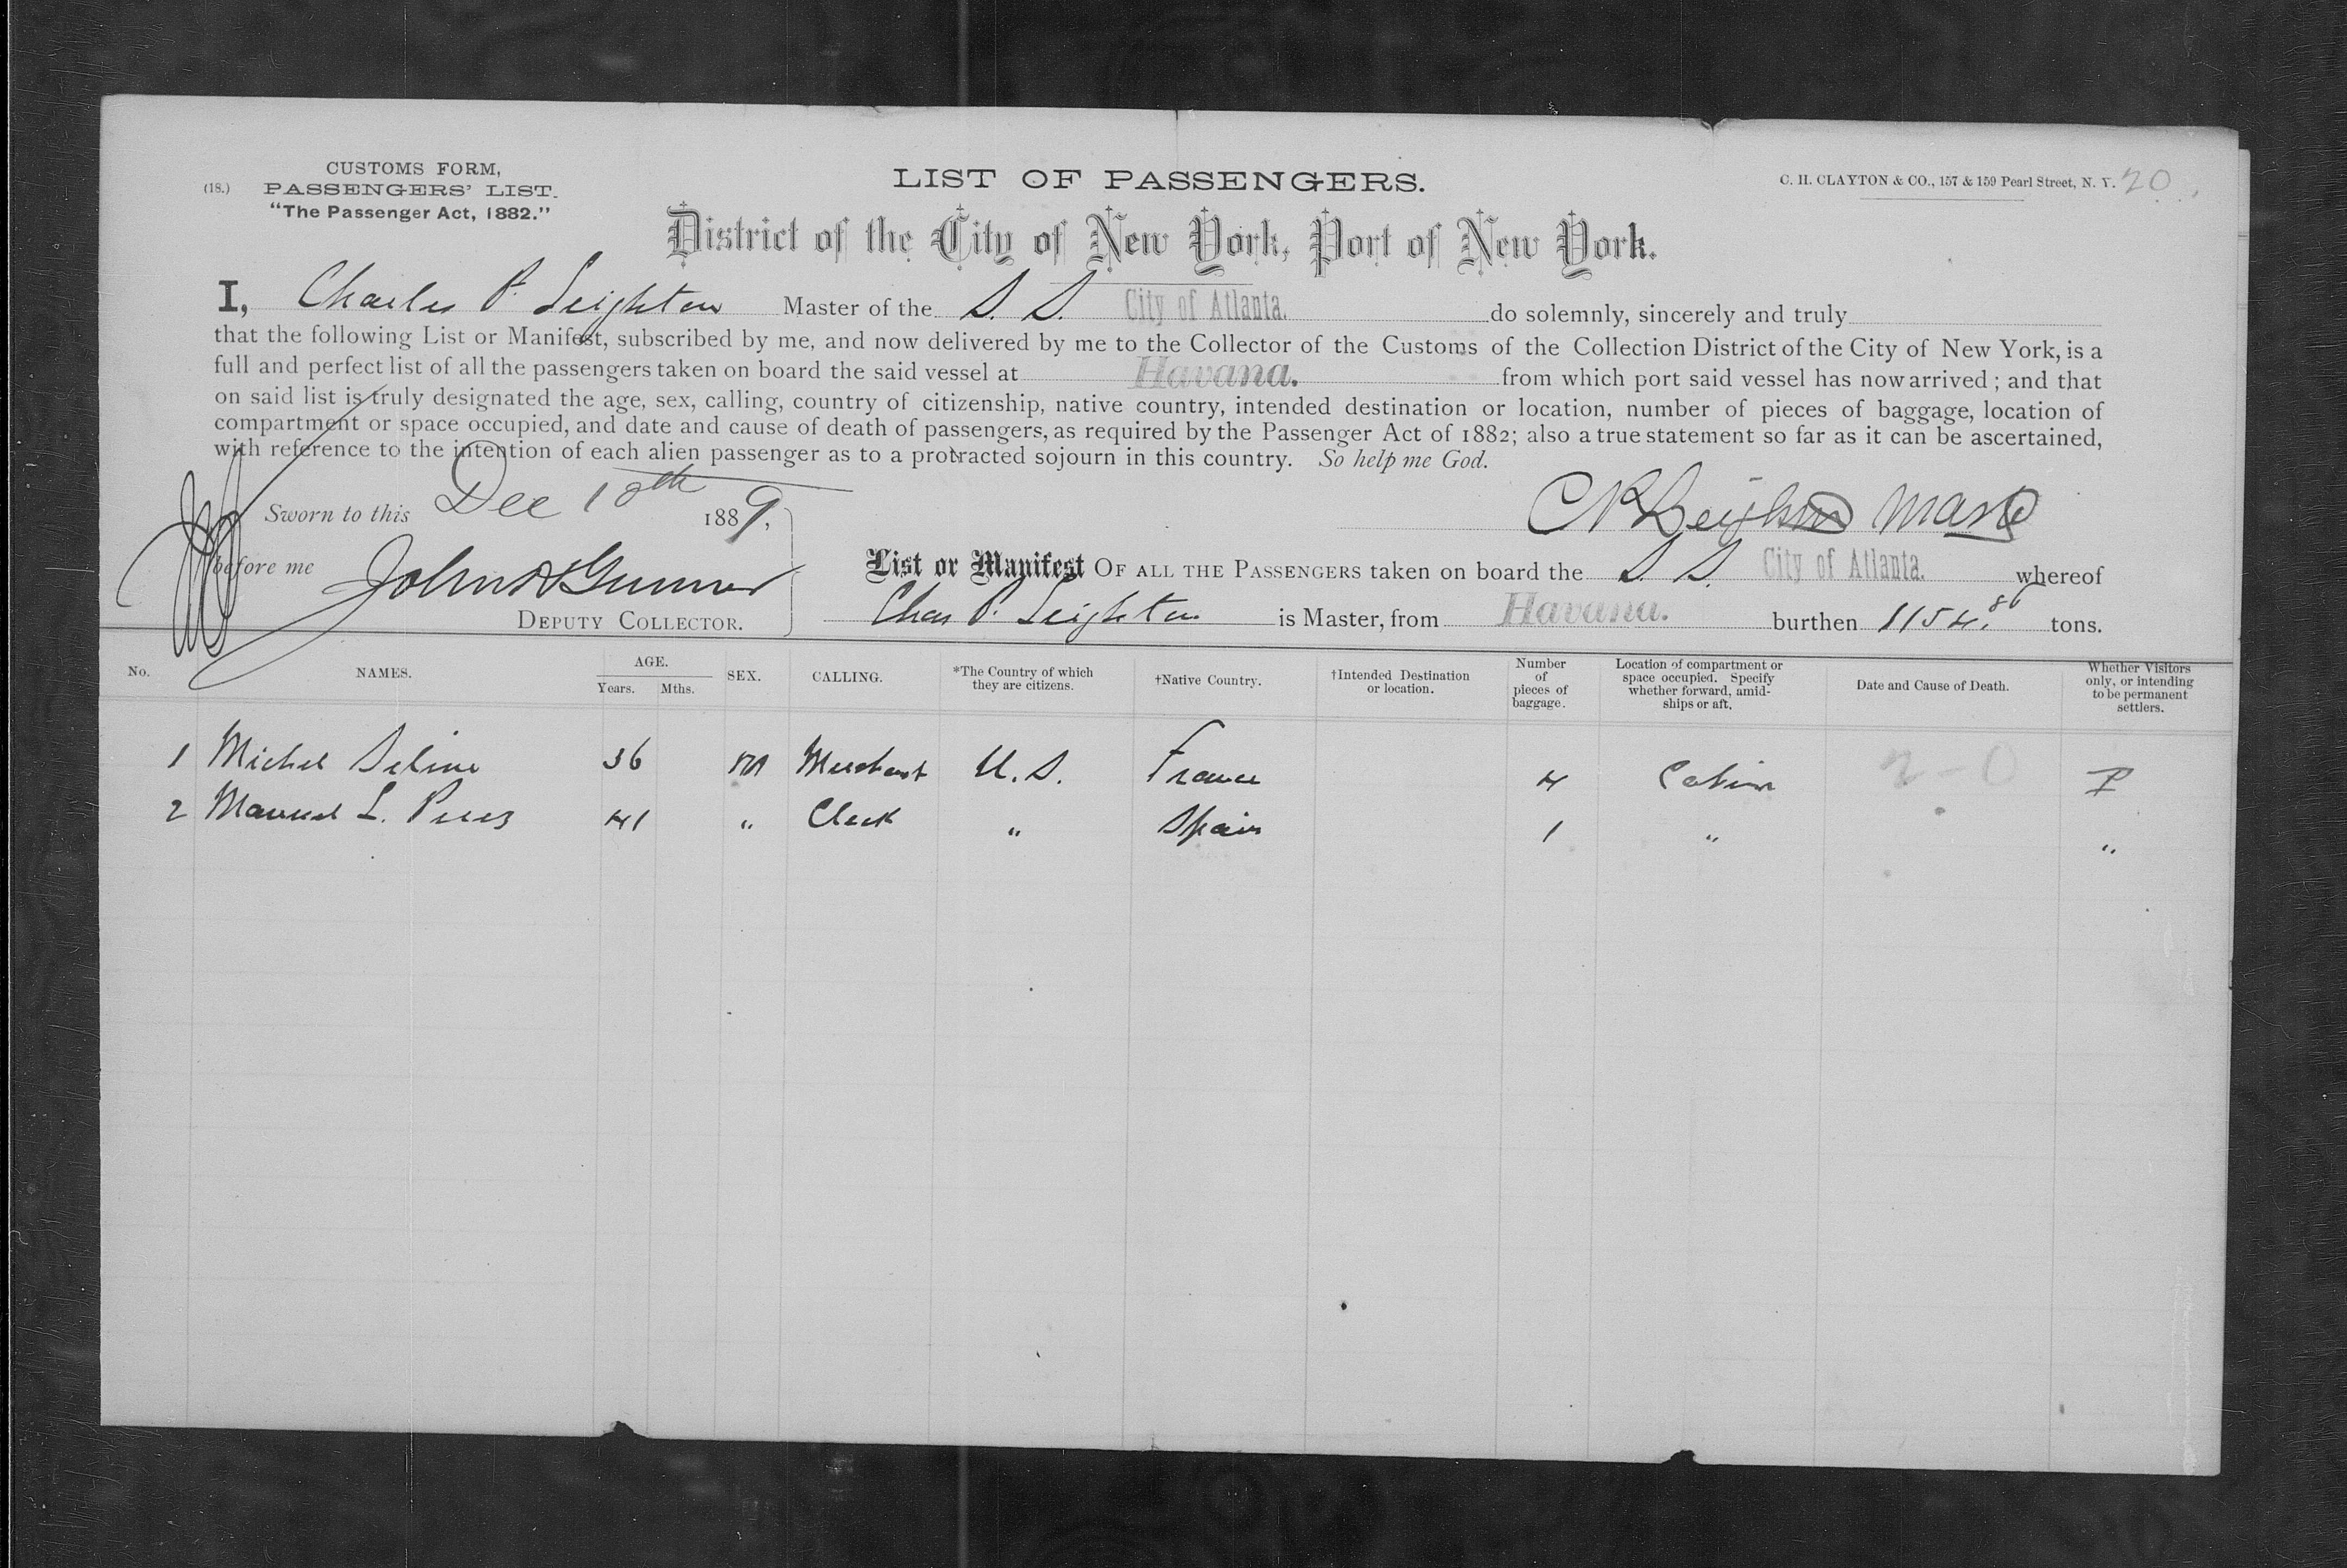 CUSTOMS FORM,
(18.) PASSENGERS' LIST.
"The Passenger Act, 1882."
LIST OF PASSENGERS.
C. H. CLAYTON & CO., 157 & 159 Pearl Street, N. Y. 20
District of the City of New York, Port of New York.
I, Charles P. Leighton Master of the S. S. City of Atlanta. do solemnly, sincerely and truly
that the following List or Manifest, subscribed by me, and now delivered by me to the Collector of the Customs of the Collection District of the City of New York, is a
full and perfect list of all the passengers taken on board the said vessel at Havana. from which port said vessel has now arrived; and that
on said list is truly designated the age, sex, calling, country of citizenship, native country, intended destination or location, number of pieces of baggage, location of
compartment or space occupied, and date and cause of death of passengers, as required by the Passenger Act of 1882; also a true statement so far as it can be ascertained,
with reference to the intention of each alien passenger as to a protracted sojourn in this country. So help me God.
Sworn to this Dec 18th 1889,
C P Leighton Mast
before me John Gunner
DEPUTY COLLECTOR.
List or Manifest OF ALL THE PASSENGERS taken on board the S. S. City of Atlanta. whereof
Chas P. Leighton is Master, from Havana. burthen 1154.86 tons.
No. NAMES. AGE. Years. Mths. SEX. CALLING. *The Country of which they are citizens. †Native Country. †Intended Destination or location. Number of pieces of baggage. Location of compartment or space occupied. Specify whether forward, amidships or aft. Date and Cause of Death. Whether Visitors only, or intending to be permanent settlers.
1 Michel 36 M Merchant U. S. France 4 Cabin 2-0 P
2 Manuel L. Perez 41 " Clerk " Spain 1 " "